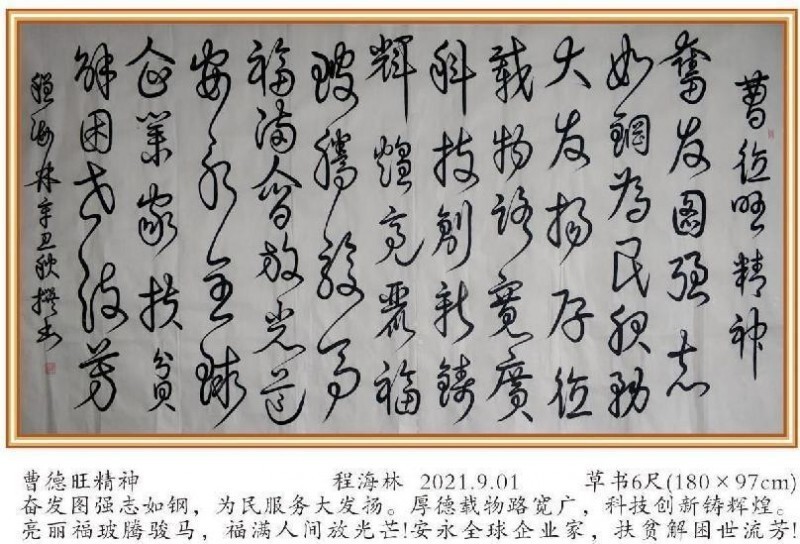 曹德旺精神
奮发图强志
如鋼為民服務
大发扬厚德
載物路寬廣
科技創新鑄
輝煌亮麗福
玻騰駿马
福满人间放光芒
安永全球
企業家扶貧
解困世流芳
程海林辛丑秋撰书
曹德旺精神 程海林 2021.9.01 草书6尺(180×97cm)
奋发图强志如钢，为民服务大发扬。厚德载物路宽广，科技创新铸辉煌。
亮丽福玻腾骏马，福满人间放光芒!安永全球企业家，扶贫解困世流芳!